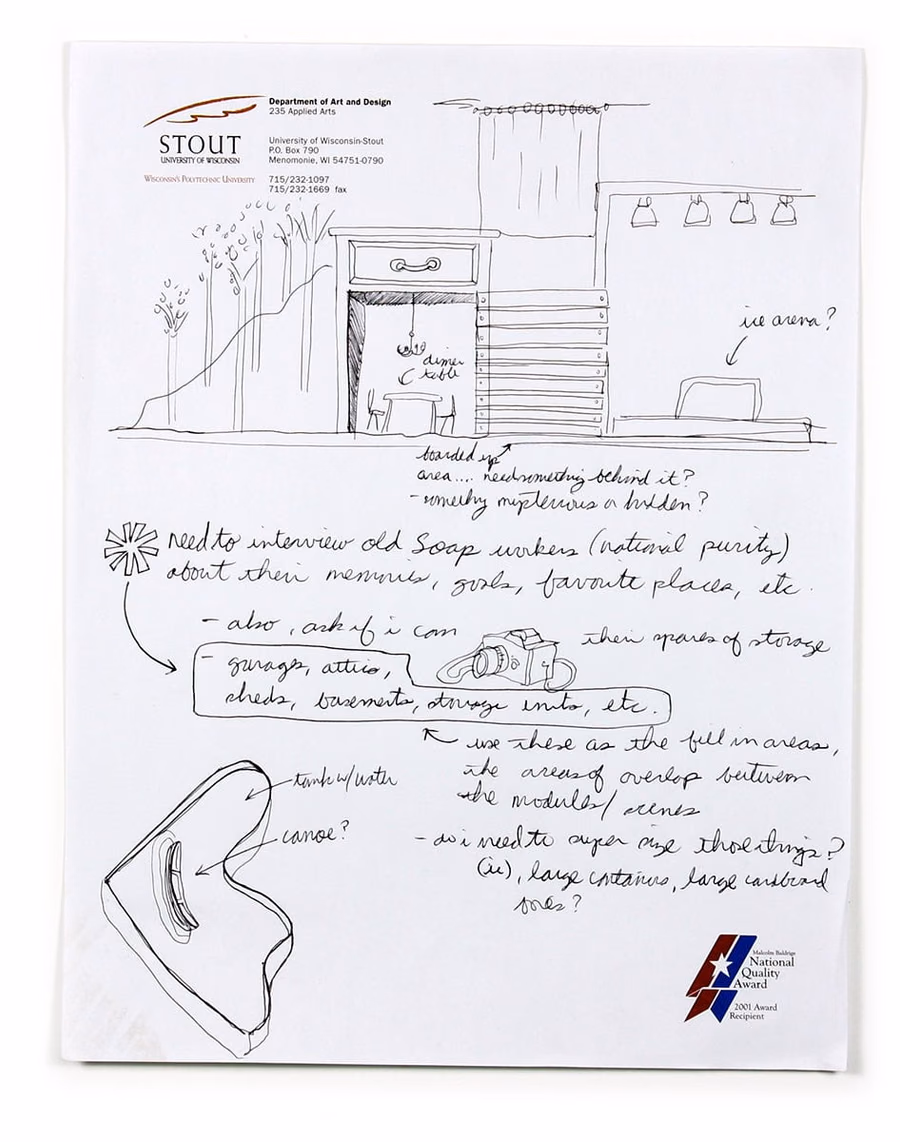 Department of Art and Design
235 Applied Arts
STOUT
UNIVERSITY OF WISCONSIN
WISCONSIN'S POLYTECHNIC UNIVERSITY
University of Wisconsin-Stout
P.O. Box 790
Menomonie, WI 54751-0790
715/232-1097
715/232-1669 fax
ice arena?
dinner
table
boarded up
area.... need something behind it?
- something mysterious or hidden?
need to interview old Soap workers (national purity)
about their memories, goals, favorite places, etc.
- also, ask if i can
their spaces of storage
- garages, attics,
sheds, basements, storage units, etc.
use these as the fill in areas,
the areas of overlap between
the modules/scenes
tank w/water
canoe?
- do i need to super size those things?
(ie), large containers, large cardboard
boxes?
Malcolm Baldrige
National
Quality
Award
2001 Award
Recipient